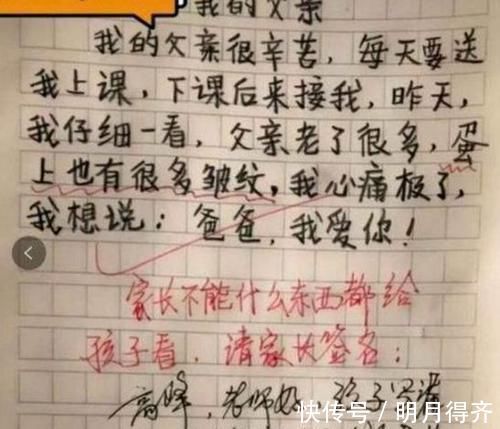 我的父亲
我的父亲很辛苦，每天要送
我上课，下课后来接我，昨天，
我仔细一看，父亲老了很多，蛋
上也有很多皱纹，我心痛极了，
我想说：爸爸，我爱你！
家长不能什么东西都给
孩子看，请家长签名：
高峰，老师好，孩子写错
快传号/明月得齐